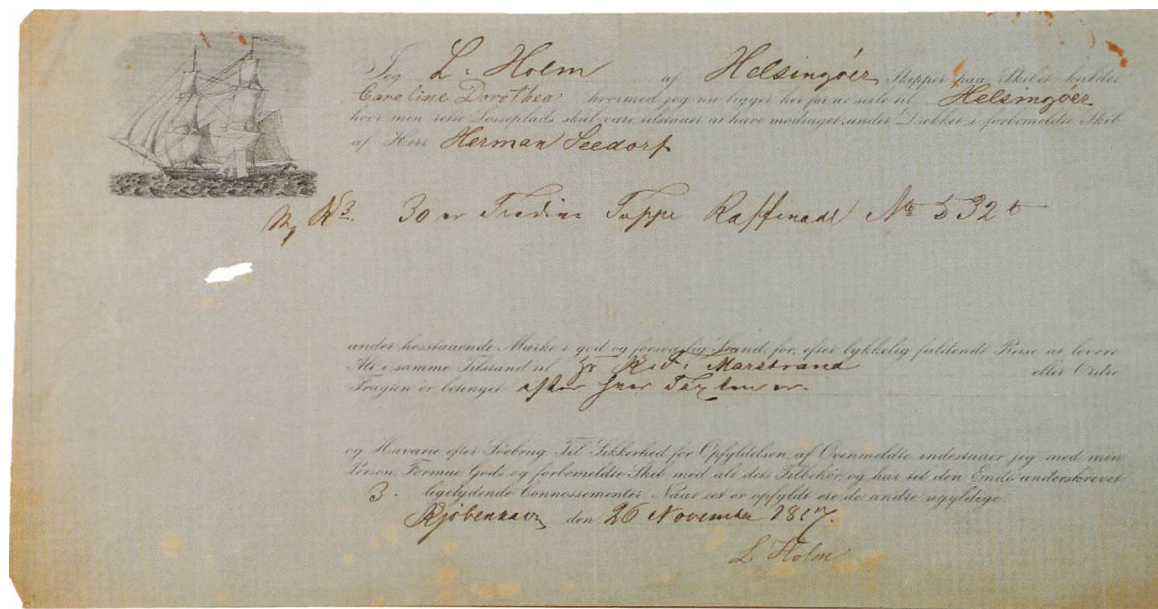 Jeg L. Holm af Helsingöer Skipper paa Skibet kaldet
Caroline Dorothea hvormed jeg nu ligger her for at seile til Helsingöer
hvor min rette Losseplads skal være tilstaaer at have modtaget under Dækket i forbemeldte Skib
af Herr Herman Seedorf
30 Toppe Raffinade 532
under hosstaaende Mærke i god og forsvarlig Stand, for efter lykkelig fuldendt Reise at levere
Alt i samme Tilstand til Marstrand eller Ordre
Fragten er betinget efter
og Havarie efter Söebrug Til Sikkerhed for Opfyldelsen af Ovenmeldte indestaaer jeg med min
Person Formue Gods og forbemeldte Skib med alt dets Tilbehör og har til den Ende underskrevet
3. ligelydende Connossementer. Naar eet er opfyldt ere de andre ugyldige.
Kjöbenhavn den 26 November
L. Holm